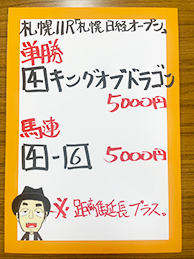 札幌11R「札幌日経オープン」
単勝
4キングオブドラゴン
5000円
馬連
4-6 5000円
※距離延長プラス。